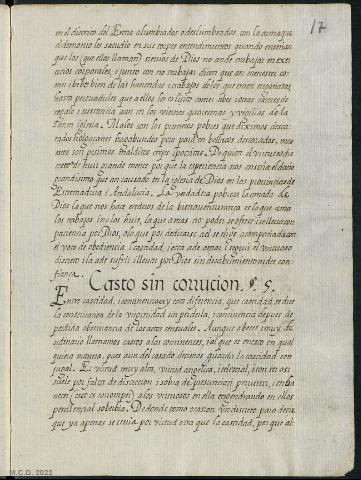 17
en el distrito del Erena alumbrados o deslumbrados con la
el demonio les sacudio en sus torpes entendimientos quando enseñan
que los (que ellos llaman) sieruos de Dios no ande trabajar en exer
cicios corporales, i junto con no trabajar dicen que an menester co
mer i beber bien de las haciendas i trabajos de los que traen engañados
hasta persuadirles que a ellos les es licito comer abes i otras carnes de
regalo i sustancia aun en los viernes quaresmas y vigilias de la
Iglesia. Malos son los primeros pobres que diximos desca
rados holgaçanes bagabundos pero
estos son pesimos malditos ereges ipocritas. De quien el virtuoso dis
creto de huir grande mente por que la esperiencia nos enseña el daño
grandisimo que an causado en la iglesia de Dios en las prouincias de
Estremadura i Andalucia. La verdadera pobreça la amada de
Dios la que nos hace erederos de la bienauenturança es la que ama
los trabajos i no los huie, la que amas no poder se ofrece i se lleua con
paciencia por Dios, o lo que por dedicarse a el se elige acompañada con
el voto de obediencia, i castidad, i esta ade amar i seguir el virtuoso
discreto i la ade sufrir i lleuar por Dios sin desabrimiento ni des con
fiança.
Casto sin corrucion. § 5.
Entre castidad, i continencia ay esta diferencia, que castidad se dice
la conseruacion de la virginidad sin perdida, i continencia despues de
perdida abstinencia de los actos sensuales. Aunque a beces i mui de
ordinario llamamos castos a los continentes, i al que es onesto en qual
quiera manera, pues aun del casado decimos guarda la castidad con
jugal. Es virtud mui alta, virtud angelica, i celestial, i con ser asi
suele por falta de discrecion i sobra de presuncion peruertir, i enba
necer (esto es corromper) a los virtuosos en ella engendrando en ellos
pestilencial soberbia. De donde tomo ocasion vn discreto para decir
que ya apenas se tenia por virtud otra que la castidad, por que al-
M.C.D. 2022